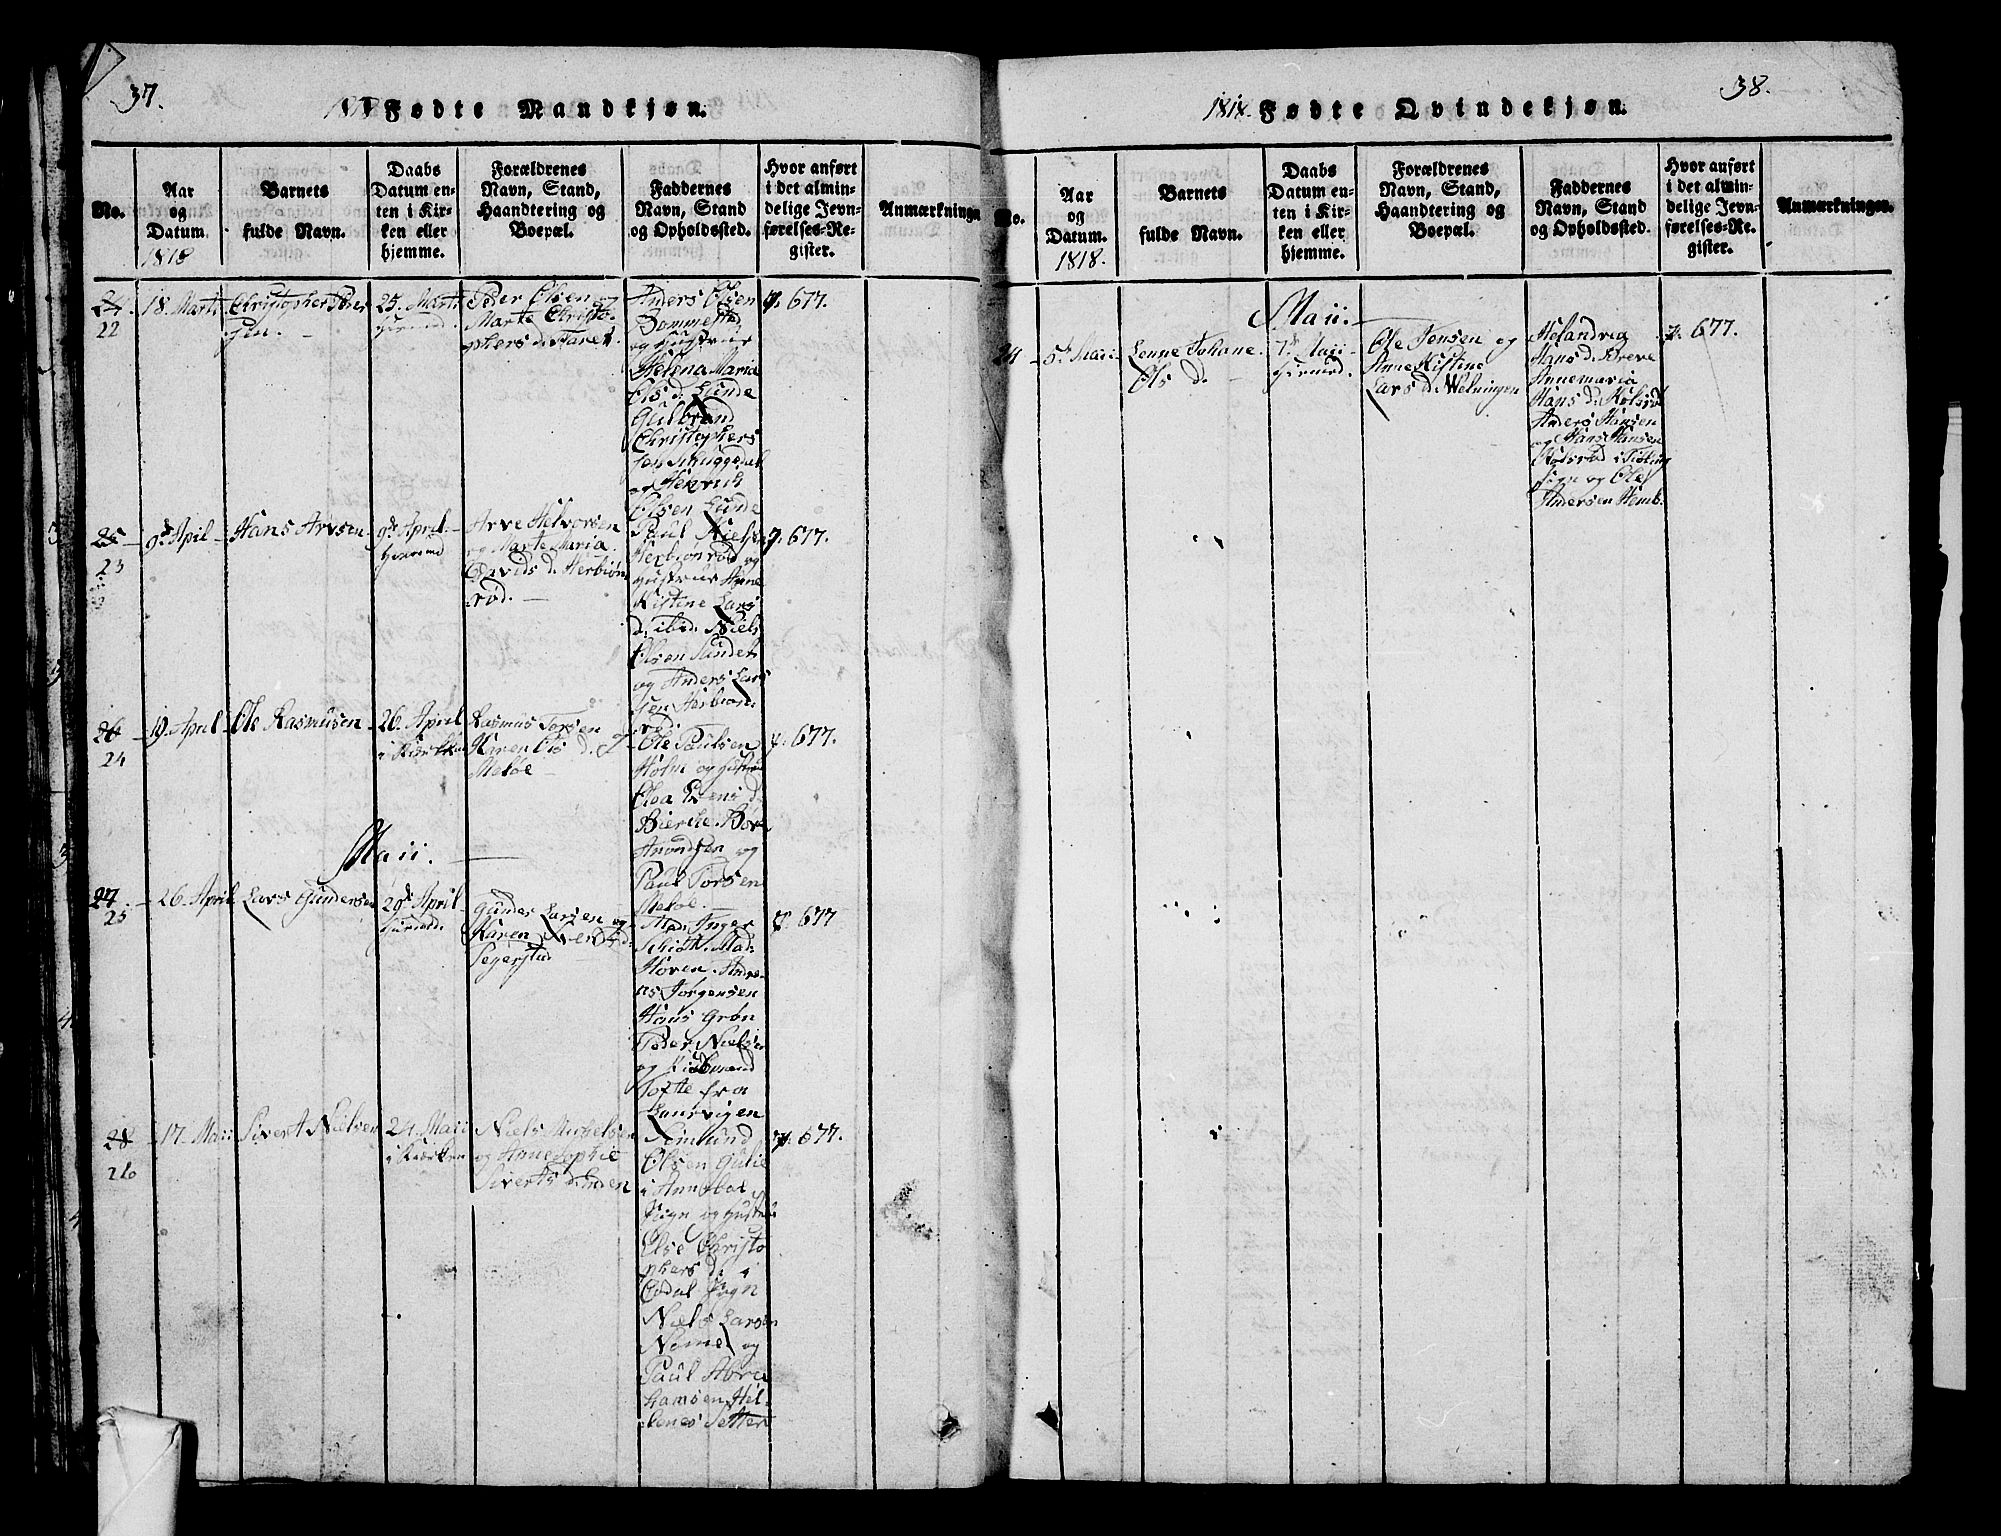 37.
1818 Fødte Mandkjøn.
No.
Aar
og
Datum.
1818
Barnets
fulde Navn.
Daabs
Datum en-
ten i Kir-
ken eller
hjemme.
Forældrenes
Navn, Stand,
Haandtering og
Boepæl.
Faddernes
Navn, Stand
og Opholdssted.
Hvor anført
i det almin-
delige Jevn-
førelses-Re-
gister.
Anmærkninger
24
22
18. Marti
Christopher Peder
sen.
25. Marti
hjemd.
Peder Olsen og
Marte Christo-
phers d. Taret.
Anders Olsen
Bommested
og Hustrue
Helena Maria
Ols d. Lunde
Gulbrand
Christophers
sen Skuggedal
og Henrich
Olsen Lunde
p. 677.
25
23
9d. April
Hans Arvsen
9d. April
hjemmd
Arve Halvorsen
og Marte Maria
Davids d. Herbiøns
rød.
Paul Niels
Herbiønrød og
Hustrue Anne
Kistine Lars
d. ibid. Niels
Olsen Sundet
og Anders Lars
sen Herbiøns
rød.
p. 677.
26
24
19. April
Ole Rasmusen
26. April
i Kirken
Rasmus Torsen
Karen Ols d. og
Meløe
Ole Paulsen
Holm og Hustru
Olea Jens d.
Bierke.
Anundsen og
Paul Torsen
Meløe.
p. 677.
Maii.
27.
25
26. April
Lars Gundersen
29d. April
hjemd.
Gunder Larsen og
Karen Svends d.
Segerstad
Md. Inger
Schiøtt. Mad.
Hoven. Andre-
as Jørgensen
Hans Grøn
Peder Nielsen
og Kiøbmand
Tofte fra
Laurvigen
p. 677
28
26
17. Maii
Sivert Nielsen
24. Maii
i Kirken
Niels Mickelsen
og Anne Sophie
Siverts d. Enden
Semund
Olsen Gulie
i Anneboe
Sogn og Hustrue
Else Christo
phers d. i
Odal Sogn
Niels Larsen
Nome og
Paul Abra
hamsen Hel-
lenes Setter
p. 677.
38.
1818. Fødte Qvindekjøn.
No.
Aar
og
Datum.
1818.
Barnets
fulde Navn.
Daabs
Datum en-
ten i Kir-
ken eller
hjemme.
Forældrenes
Navn, Stand,
Haandtering og
Boepæl.
Faddernes
Navn, Stand
og Opholdssted.
Hvor anført
i det almin-
delige Jevn-
førelses-Re-
gister.
Anmærkninger.
Maii.
24
5te Maii
Lenne Johane
Ols d.
7de Maii
hjemd.
Ole Jensen og
Anne Kistine
Lars d. Melningen
Helandvig
Hans d. Breve
Annemaria
Hans d. Kolsrød
Anders Hansen
og Hans Hansen
Kolsrød i Tiøling
Sogn og Ole
Andersen Hemb.
p. 677.